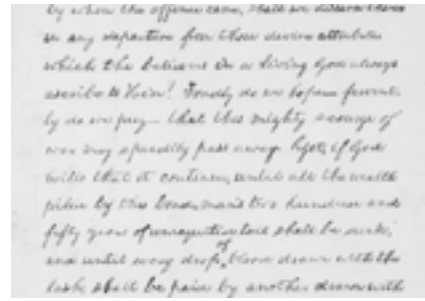 by whom the offence came, shall we discern therein
any departure from those divine attributes
which the believers in a living God always
ascribe to Him? Fondly do we hope, fervent-
ly do we pray— that this mighty scourge of
war may speedily pass away. Yet, if God
wills that it continue, until all the wealth
piled by the bonds-man's two hundred and
fifty years of unrequited toil shall be sunk,
and until every drop of blood drawn with the
lash, shall be paid by another drawn with